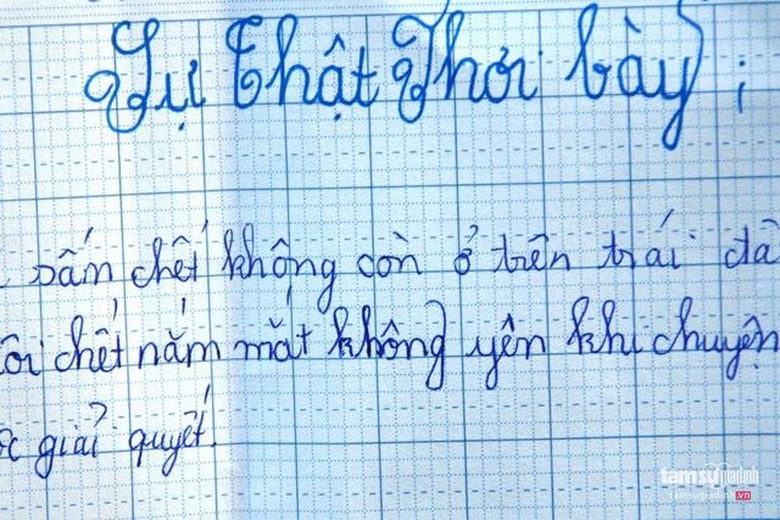 Sự thật Phơi bày :
sấm chết không còn ở trên trái đấ
ôi chết nắm mắt không yên khi chuyện
ợc giải quyết.
tamsựgiadinh
tamsugiadinh.vn